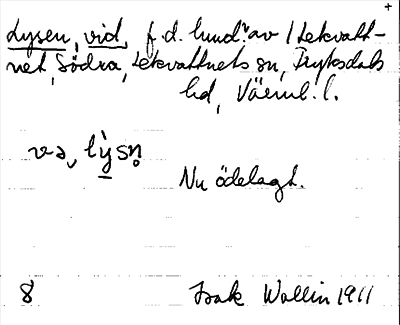 +
Lysen, vid, f. d. lund? av 1 Lekvatt-
net, Södra, Lekvattnets sn, Fryksdals
hd, Värml. l.
va, lỳsn̥
Nu ödelagt.
8 Isak Wallin 1911